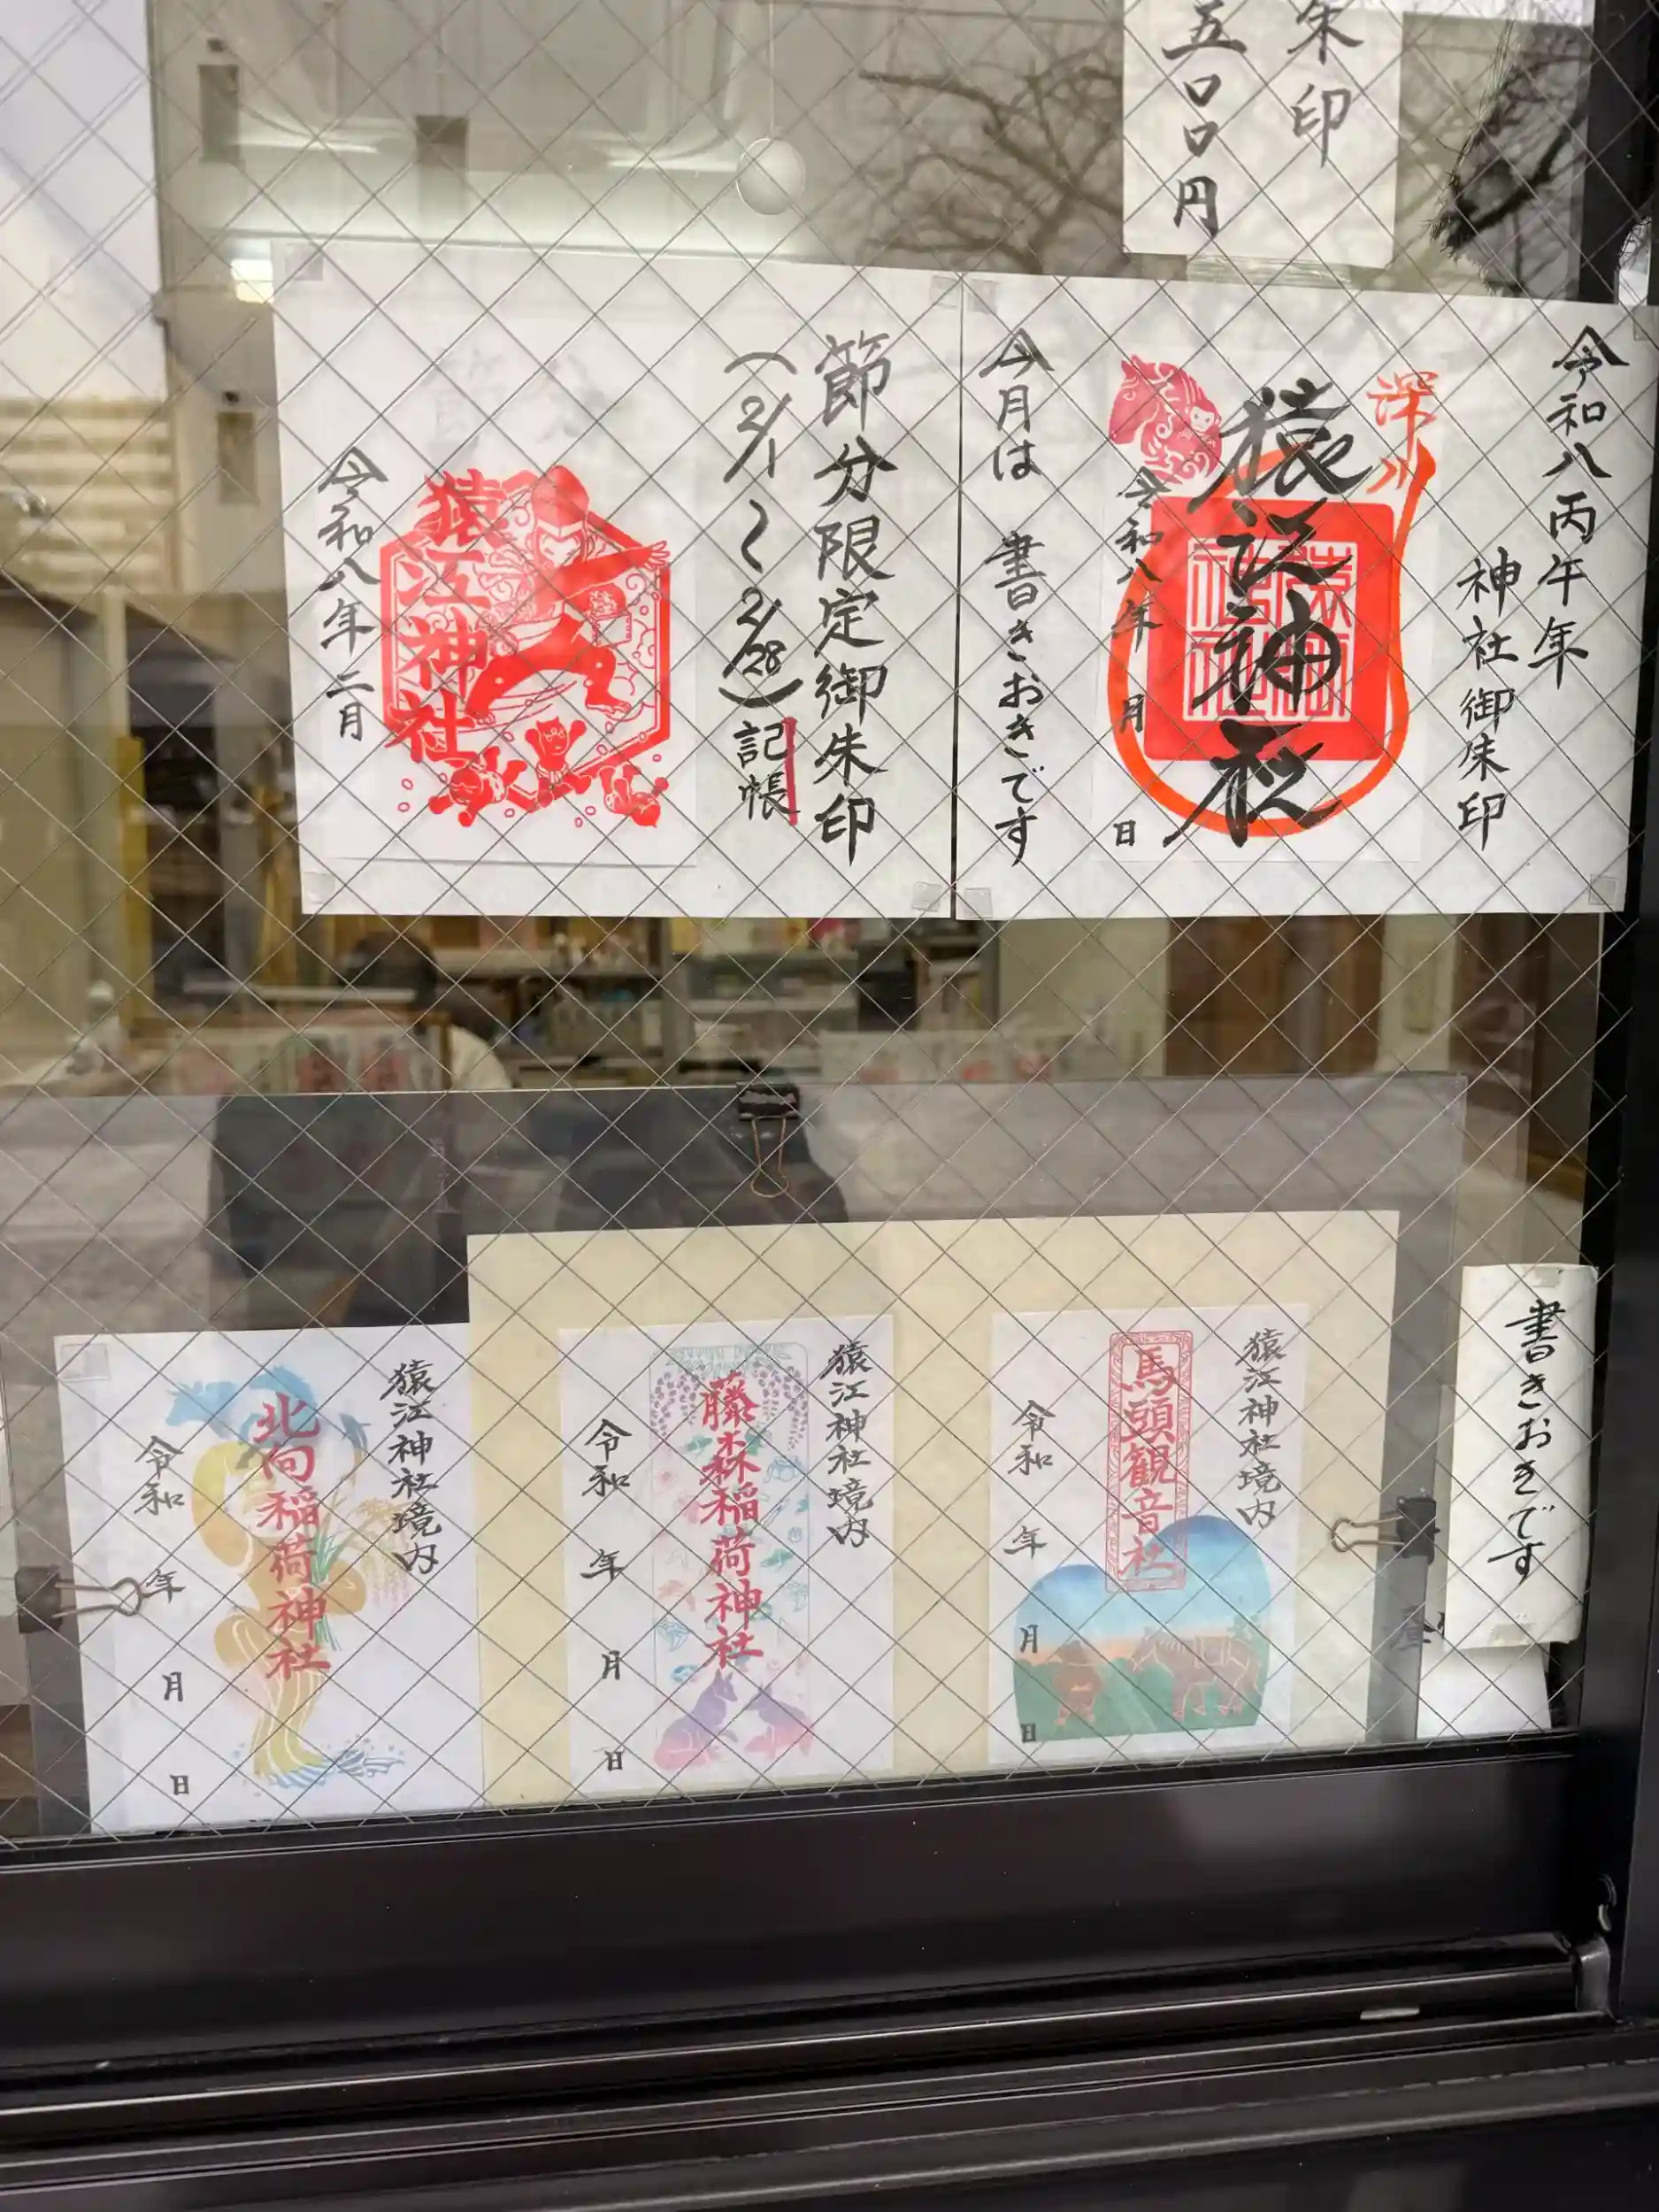 朱印
五〇〇円
令和八丙午年
神社御朱印
深川
猿江神社
令和八年 月 日
今月は 書きおきです
節分限定御朱印
(2/1〜2/28)記帳
猿江神社
令和八年二月
書きおきです
猿江神社境内
馬頭観音社
令和 年 月 日
猿江神社境内
藤森稲荷神社
令和 年 月 日
猿江神社境内
北向稲荷神社
令和 年 月 日